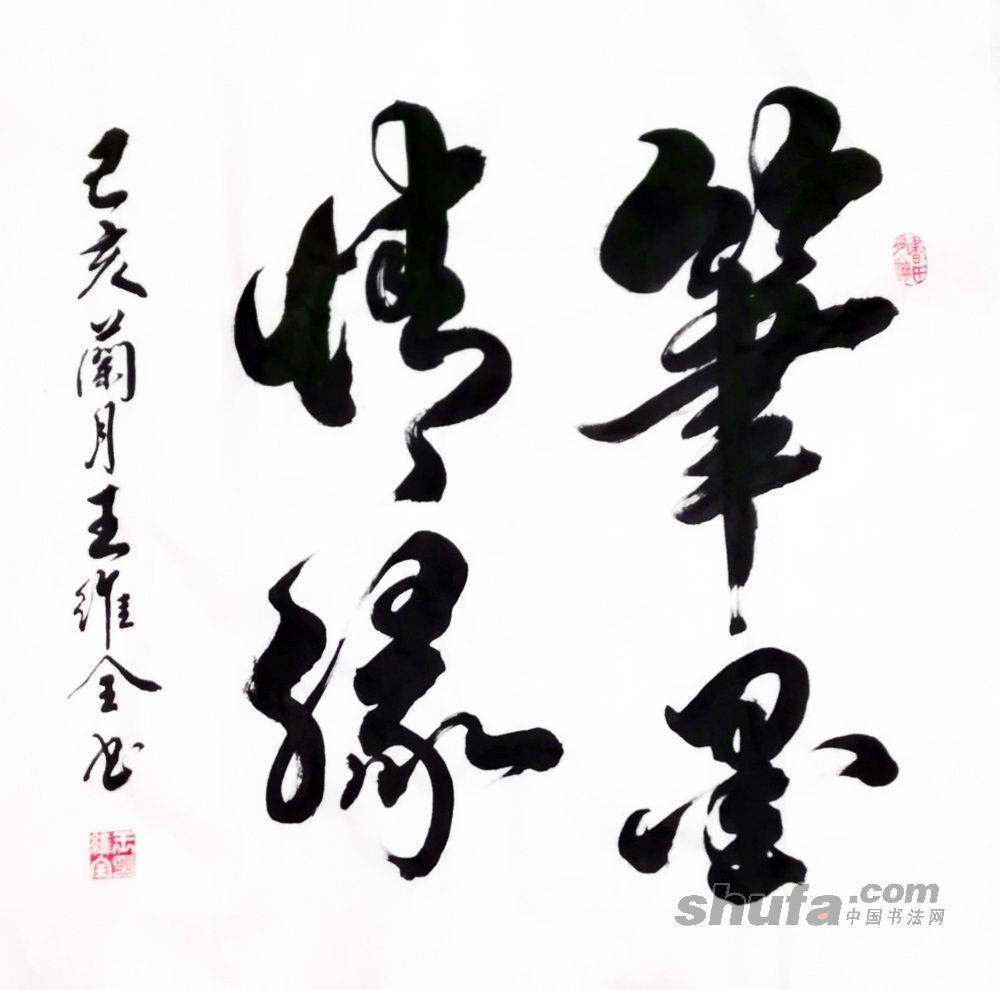 筆墨
情緣
己亥蘭月王維全书
shufa.com
中国书法网